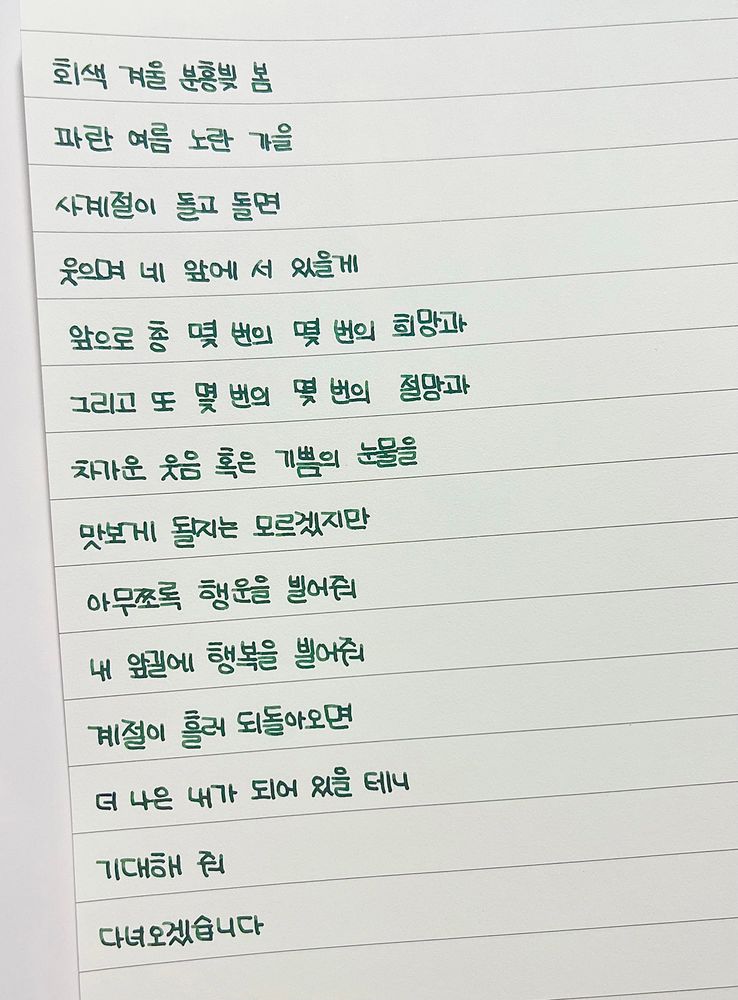 회색 겨울 분홍빛 봄
파란 여름 노란 가을
사계절이 돌고 돌면
웃으며 네 앞에 서 있을게
앞으로 총 몇 번의 몇 번의 희망과
그리고 또 몇 번의 몇 번의 절망과
차가운 웃음 혹은 기쁨의 눈물을
맛보게 될지는 모르겠지만
아무쪼록 행운을 빌어줘
내 앞길에 행복을 빌어줘
계절이 흘러 되돌아오면
더 나은 내가 되어 있을 테니
기대해 줘
다녀오겠습니다